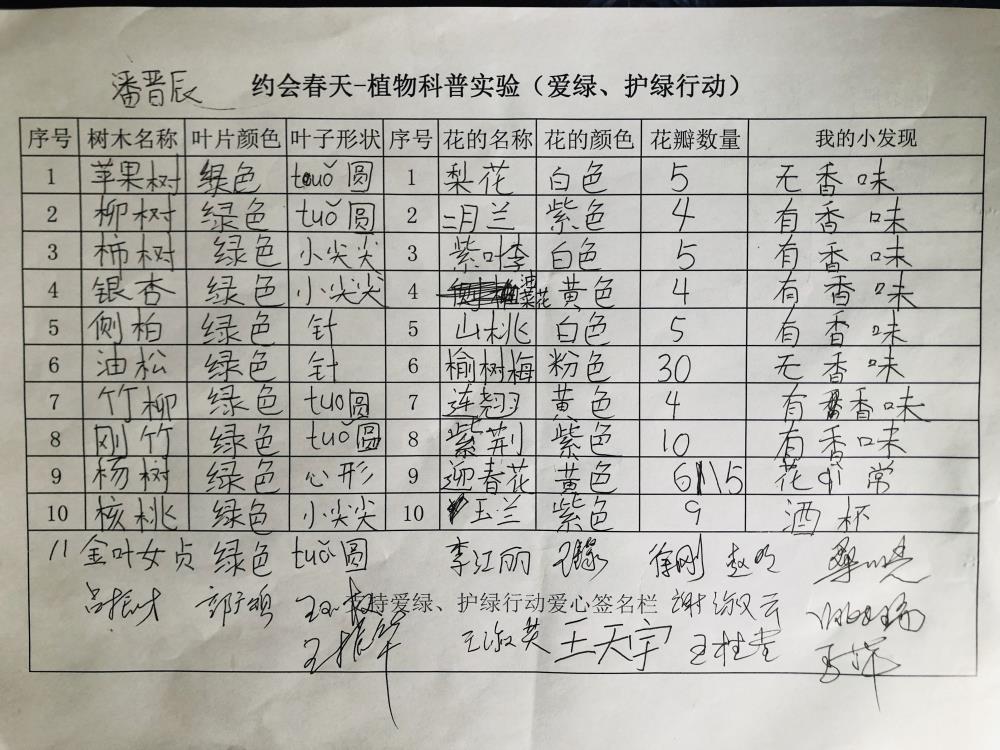 潘晋辰 约会春天-植物科普实验（爱绿、护绿行动）
序号 树木名称 叶片颜色 叶子形状 序号 花的名称 花的颜色 花瓣数量 我的小发现
1 苹果树 绿色 tuǒ圆 1 梨花 白色 5 无香味
2 柳树 绿色 tuǒ圆 2 二月兰 紫色 4 有香味
3 柿树 绿色 小尖尖 3 紫叶李 白色 5 有香味
4 银杏 绿色 小尖尖 4 油菜花 黄色 4 有香味
5 侧柏 绿色 针 5 山桃 白色 5 有香味
6 油松 绿色 针 6 榆树梅 粉色 30 无香味
7 竹柳 绿色 tuo圆 7 连翘 黄色 4 有香味
8 刚竹 绿色 tuo圆 8 紫荆 紫色 10 有香味
9 杨树 绿色 心形 9 迎春花 黄色 6 5 花 常
10 核桃 绿色 小尖尖 10 玉兰 紫色 9 酒杯
11 金叶女贞 绿色 tuǒ圆 李江丽 徐刚
吕振才 持爱绿、护绿行动爱心签名栏 谢淑云
王振华 王淑英 王天宇 王桂堂